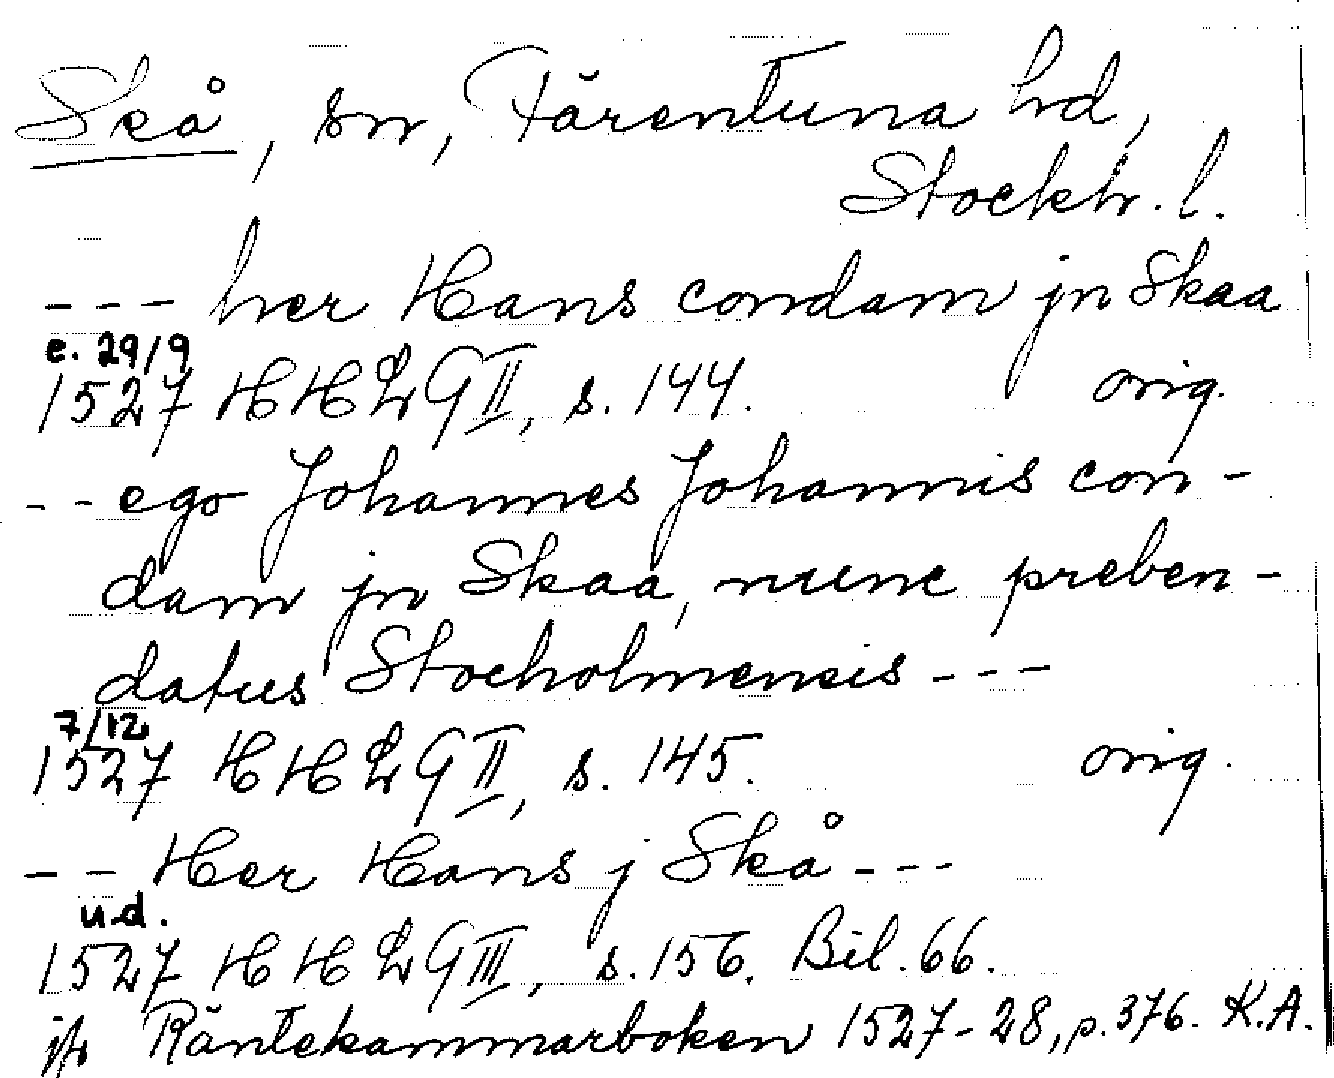 Skå, sn, Färentuna hd,
Stockh. l.
--- her Hans condam jn Skaa
e. 29/9
1527 HHLG II, s. 144. orig.
-- ego Johannes Johannis con-
dam jn Skaa, nunc preben-
datus Stocholmensis ---
7/12
1527 HHLG II, s. 145. orig.
-- Her Hans j Skå ---
u.d.
1527 HHLG III, s. 156. Bil. 66.
jfr Räntekammarboken 1527-28, p. 376. K.A.